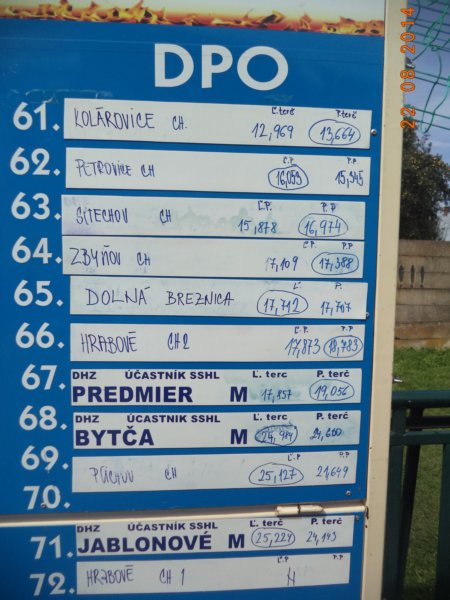 DPO
22 08 2014
61. KOLÁROVICE CH. Ľ.terč 12,969 P.terč 13,664
62. PETROVICE CH Ľ.P. 16,053 P.P. 15,345
63. SÚĽOV CH Ľ.P. 15,878 P.P. 16,974
64. ZBYŇOV CH Ľ.P. 17,109 P.P. 17,388
65. DOLNÁ BREZNICA Ľ. 17,712 P. 17,707
66. HRABOVÉ CH 2 Ľ.P. 17,873 P.P. 18,783
67. DHZ ÚČASTNÍK SSHL Ľ. terc P. terč
PREDMIER M 17,157 19,056
68. DHZ ÚČASTNÍK SSHL Ľ. terc P. terč
BYTČA M 24,600
69. PÚCHOV CH Ľ.P. 25,127 P.P. 21,649
70.
71. DHZ ÚČASTNÍK SSHL Ľ. terč P. terč
JABLONOVÉ M 25,224 24,143
72. HRABOVÉ CH 1 Ľ.P. N P.P.